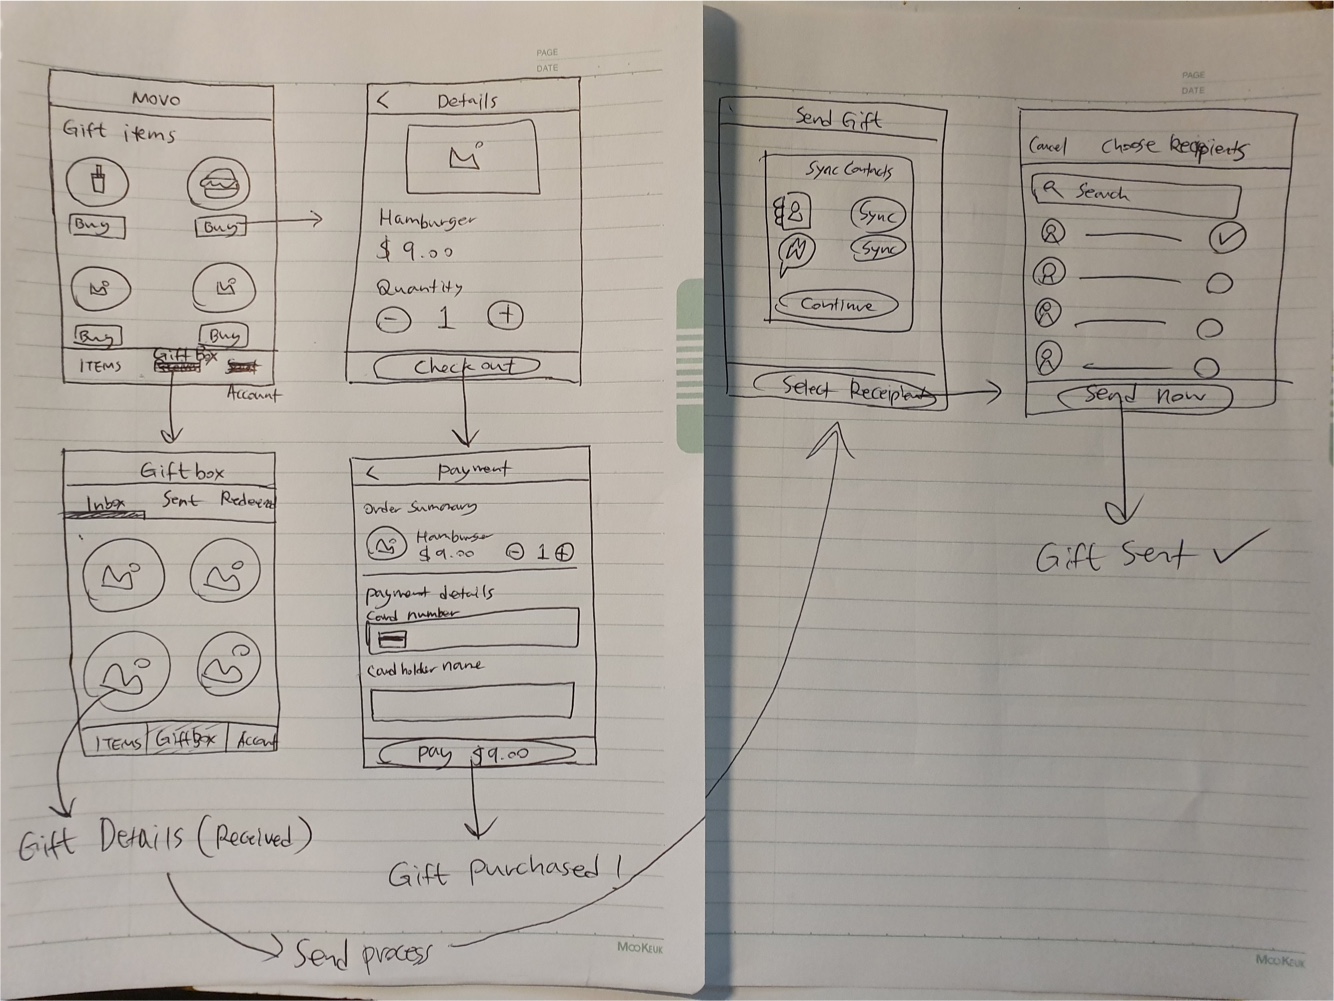 PAGE
DATE
MOVO
Gift items
Buy
Buy
Buy
Buy
ITEMS
Gift Box
Account
<
Details
Hamburger
$ 9.00
Quantity
- 1 +
Check out
Gift box
Inbox Sent
ITEMS Gift Box
Gift Details (Received)
<
payment
Order Summary
Hamburger
$9.00
- 1 +
payment details
Card number
Card holder name
pay $9.00
Gift purchased !
Send process
MOOKEUK
PAGE
DATE
Send Gift
Sync Contacts
Sync
Sync
Continue
Select Receipient
Cancel Choose Recipients
Search
Send now
Gift Sent ✓
MOOKEUK